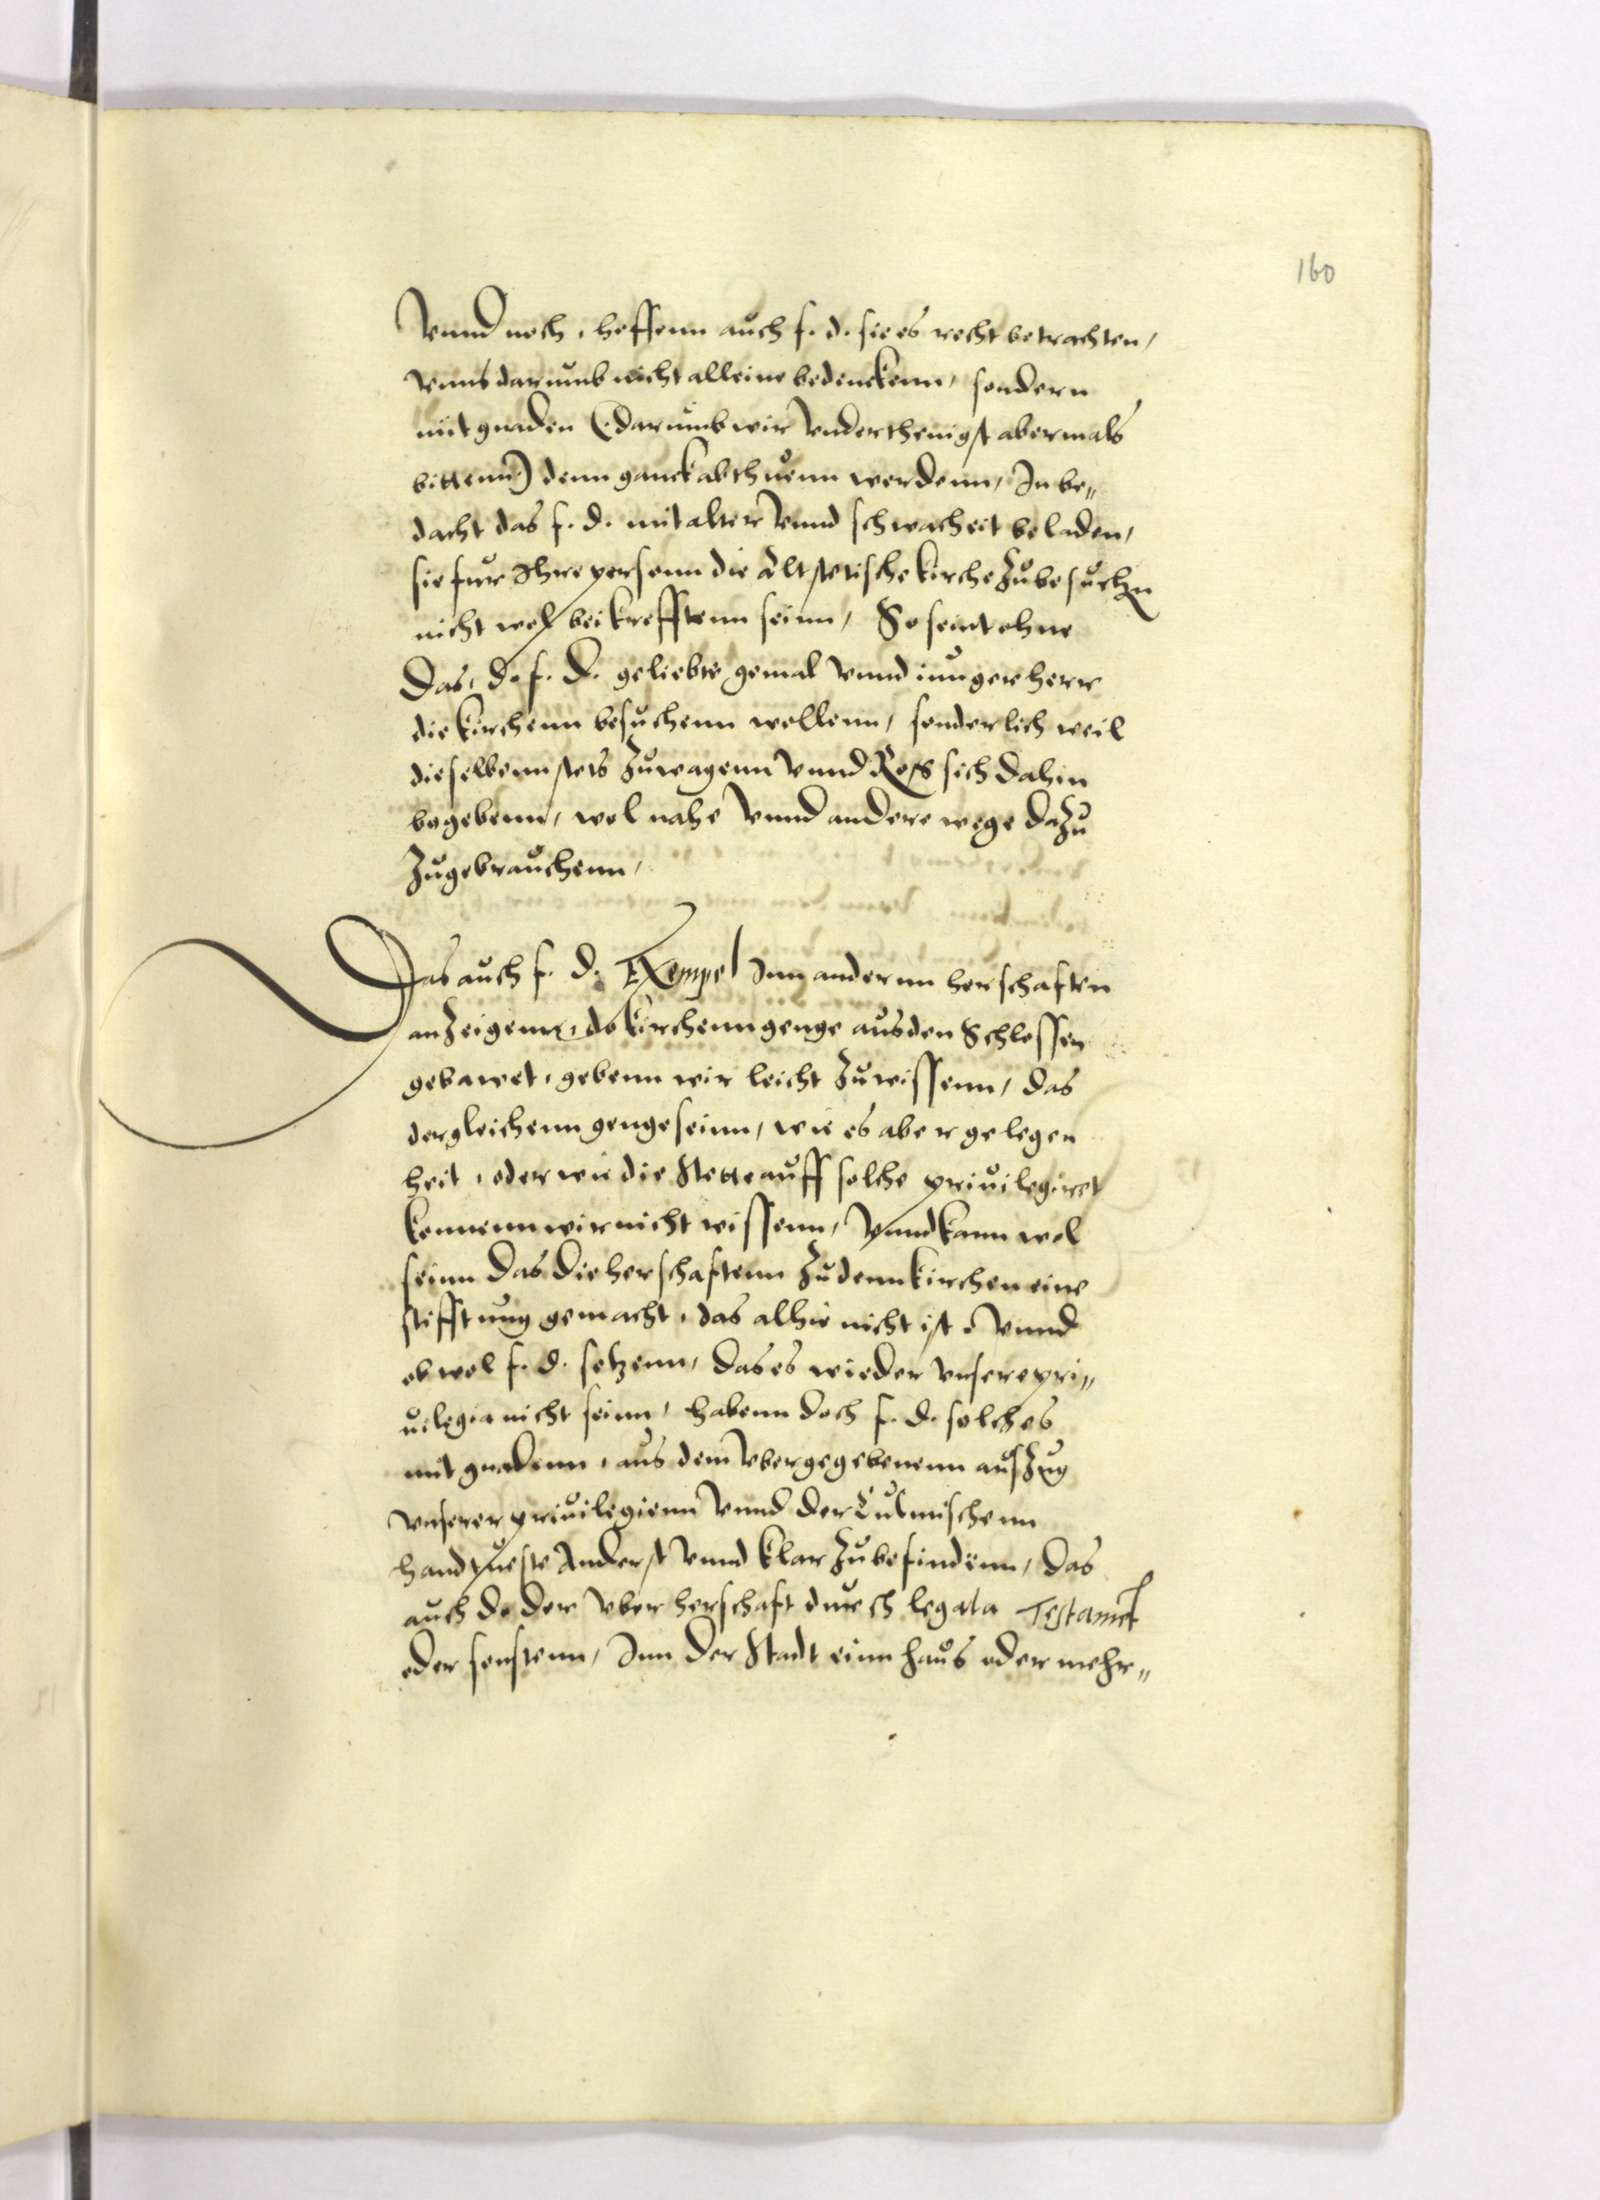 160
Vnnd noch, hoffenn auch f. d. sie es recht betrachten,
vnns darumb nicht alleine bedenckenn, sondern
mit gnaden (darumb wir vnderthenigst abermals
bittenn) denn ganck abthuenn werdenn, In be„
dacht das f. d. mit alter vnnd schwacheit beladen,
sie fur Ihre personn die Altstetische kirche zubesuchen
nicht wol bei krefftenn seinn, So seindt ohne
das, d. f. d. geliebte gemal vnnd iunger herr
die kirchenn besuchenn wollenn, sonderlich weil
dieselbenn stets zu wagenn vnnd Ross sich dahin
begebenn, wol nahe vnnd andere wege dazu
zugebrauchenn,
Das auch f. d. Exempel Inn andernn herschaften
anzeigenn, do kirchenngenge aus den Schlossen
gebawet, gebenn wir leicht zuwissenn, das
dergleichenn genge seinn, wie es aber gelegen
heit, oder wie die Stette auff solche priuilegiret
konnenn wir nicht wissenn, Vnnd kann wol
seinn das die herschaftenn zu denn kirchen eine
stifftung gemacht, das alhie nicht ist, Vnnd
ob wol f. d. setzenn, das es wieder vnsere pri„
uilegia nicht seinn, habenn doch f. d. solches
mit gnadenn, aus dem vbergegebenenn auszug
vnserer priuilegienn vnnd der Culmischenn
handtueste Anderst vnnd klar zubefindenn, das
auch do der vber herschaft durch legata Testament
oder sonstenn, Inn der Stadt einn haus oder mehr„